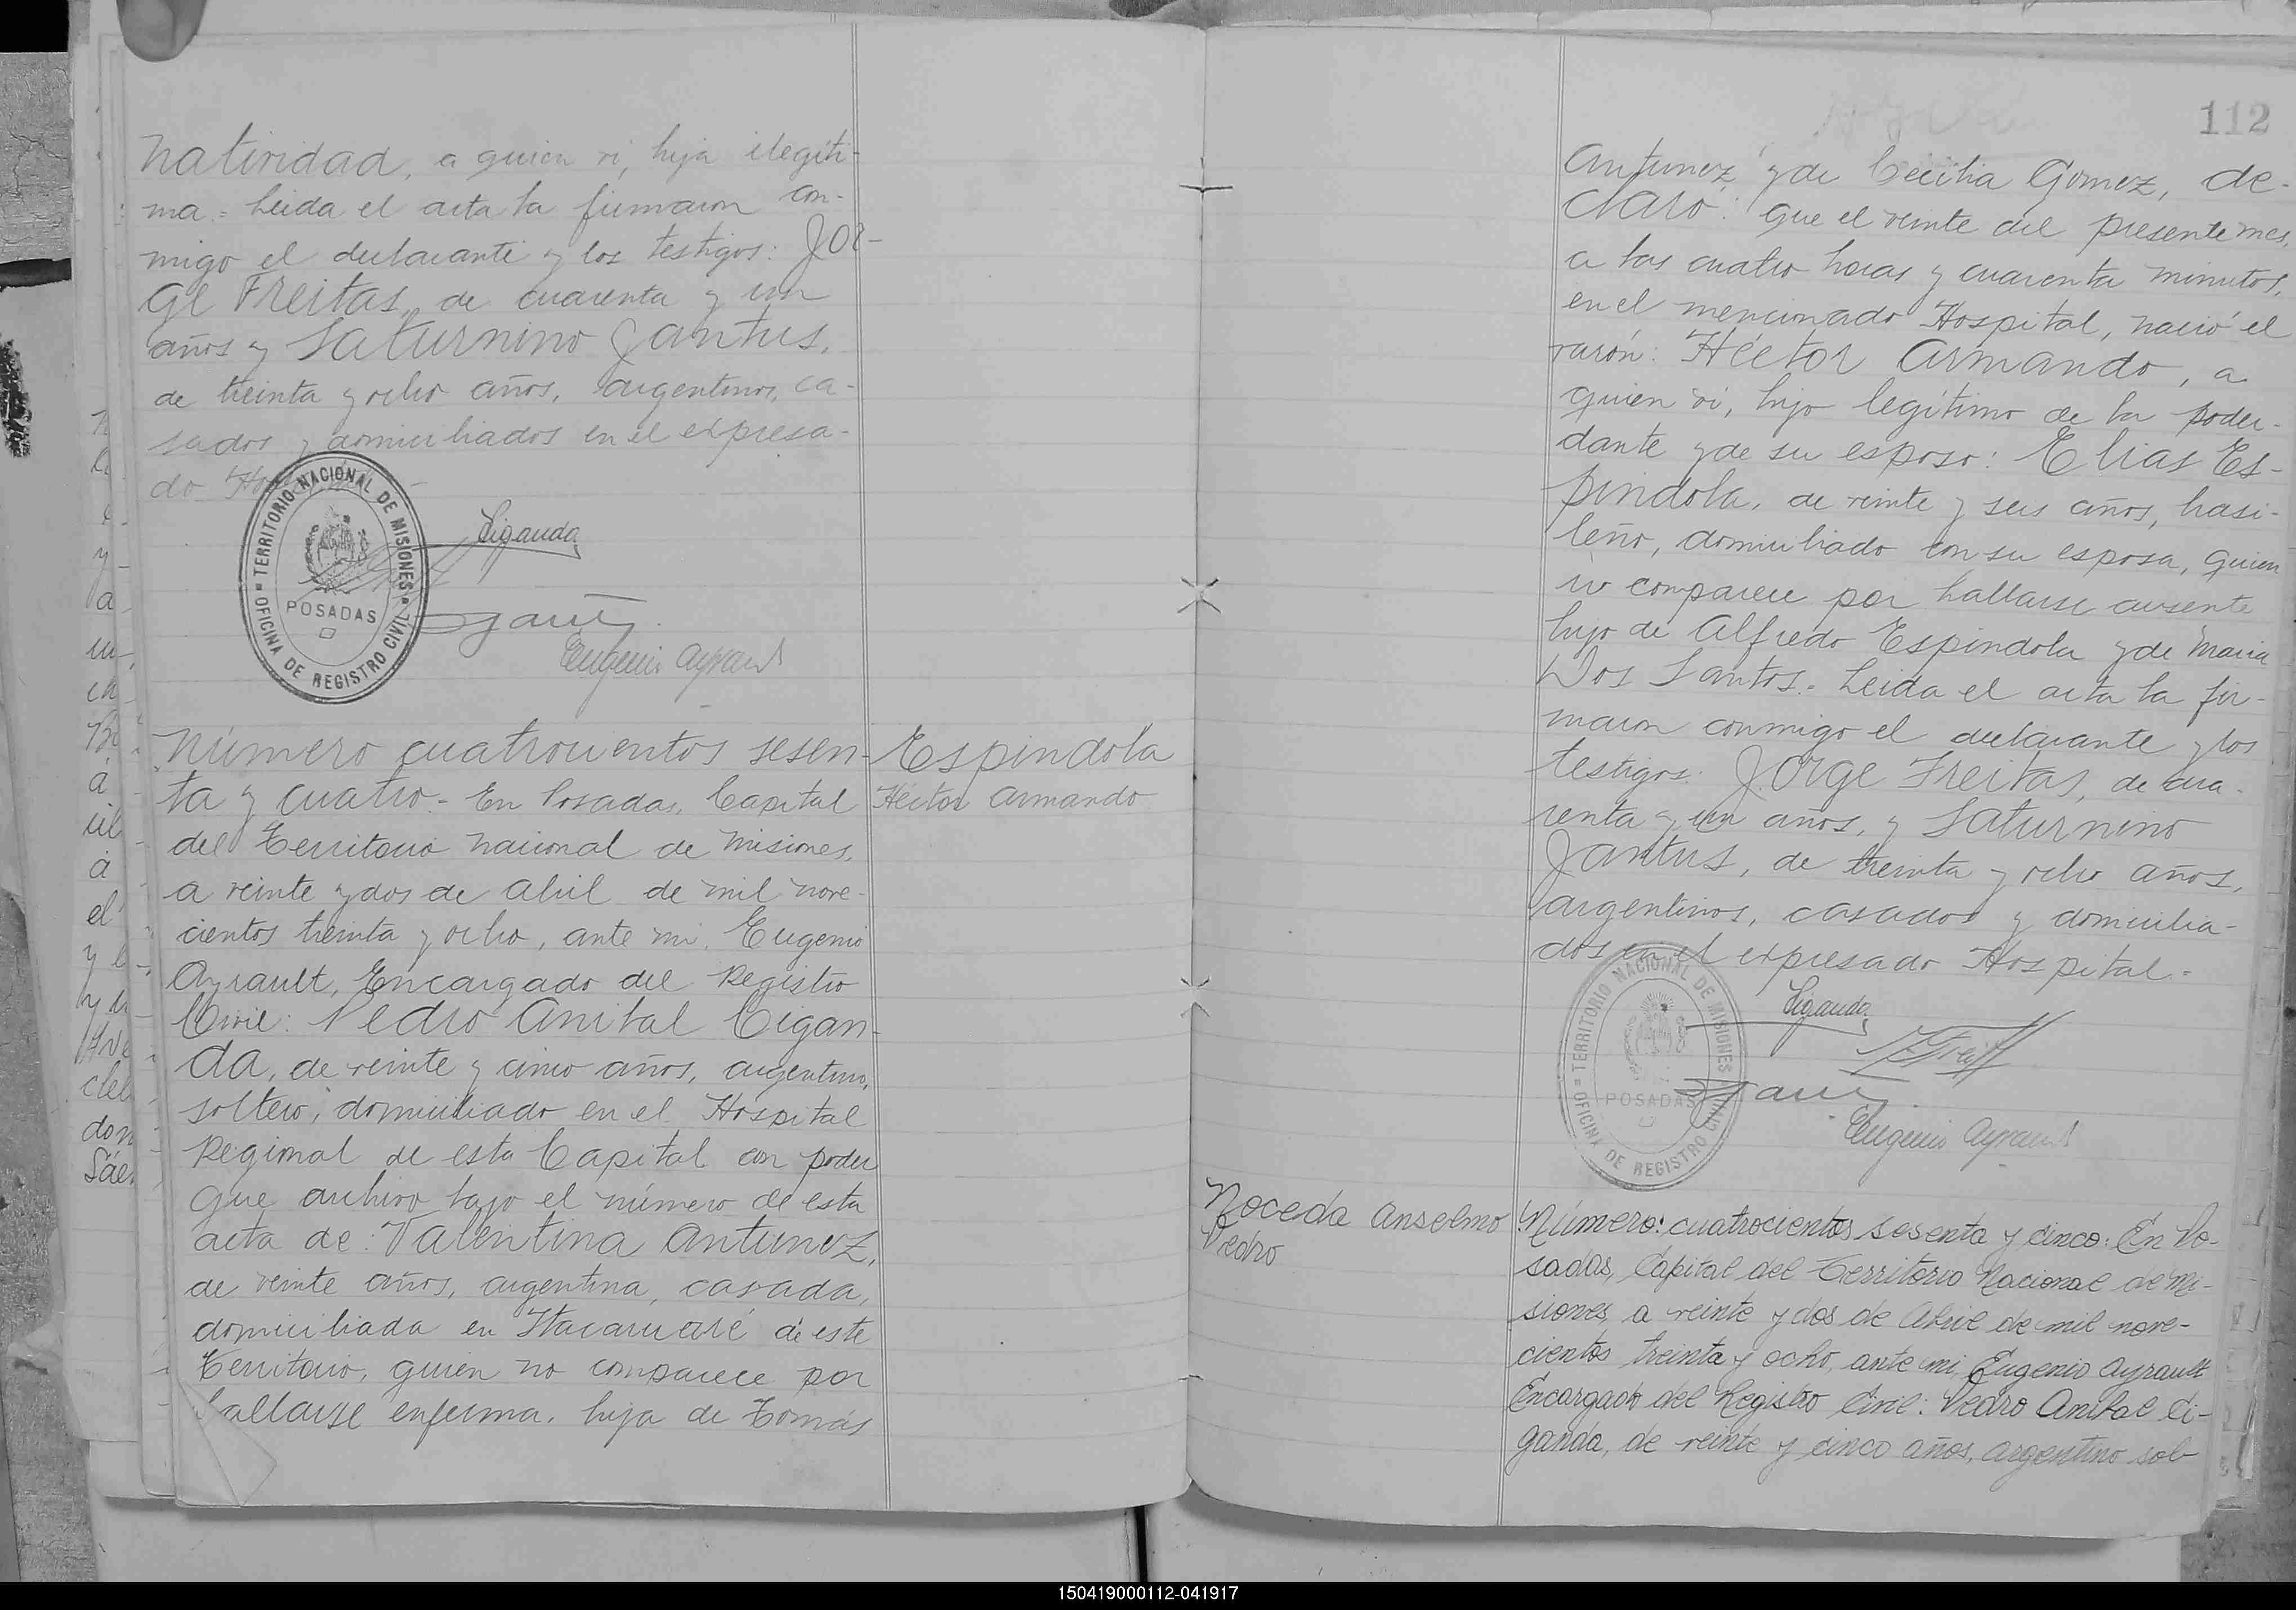 Natividad, a quien vi, hija ilegíti-
ma.= Leida el acta la firmaron con-
migo el declarante y los testigos: Jor-
ge Freitas, de cuarenta y un
años y Saturnino Jantus,
de treinta y ocho años, argentinos, ca-
sados y domiciliados en el expresa-
do
TERRITORIO NACIONAL DE MISIONES
POSADAS
OFICINA DE REGISTRO CIVIL
Ciganda
Eugenio Ayrault
Número cuatrocientos sesen-
ta y cuatro.- En Posadas, Capital
del Territorio Nacional de Misiones,
a veinte y dos de Abril de mil nove-
cientos treinta y ocho, ante mi, Eugenio
Ayrault, Encargado del Registro
Civil: Pedro Anibal Cigan-
da, de veinte y cinco años, argentino,
soltero, domiciliado en el Hospital
Regional de esta Capital con poder
que archivo bajo el número de esta
acta de: Valentina Antunez,
de veinte años, argentina, casada,
domiciliada en Itacaruaré de este
Territorio, quien no comparece por
hallarse enferma, hija de Tomás
Espindola
Héctor Armando
112
Antunez y de Cecilia Gomez, de-
claró: que el veinte del presente mes,
a las cuatro horas y cuarenta minutos,
en el mencionado Hospital, nació el
varón: Héctor Armando, a
quien vi, hijo legítimo de la poder-
dante y de su esposo: Elias Es-
pindola, de veinte y seis años, brasi-
leño, domiciliado con su esposa, quien
no comparece por hallarse ausente
hijo de Alfredo Espindola y de Maria
Dos Santos.= Leida el acta la fir-
maron conmigo el declarante y los
testigos: Jorge Freitas, de cua-
renta y un años, y Saturnino
Jantus, de treinta y ocho años,
argentinos, casados y domicilia-
dos en el expresado Hospital.=
TERRITORIO NACIONAL DE MISIONES
POSADAS
OFICINA DE REGISTRO CIVIL
Ciganda
Eugenio Ayrault
Noceda Anselmo
Pedro
Número: cuatrocientos sesenta y cinco: En Po-
sadas, Capital del Territorio Nacional de Mi-
siones, a veinte y dos de Abril de mil nove-
cientos treinta y ocho, ante mi, Eugenio Ayrault
Encargado del Registro Civil: Pedro Anibal Ci-
ganda, de veinte y cinco años, argentino sol-
150419000112-041917